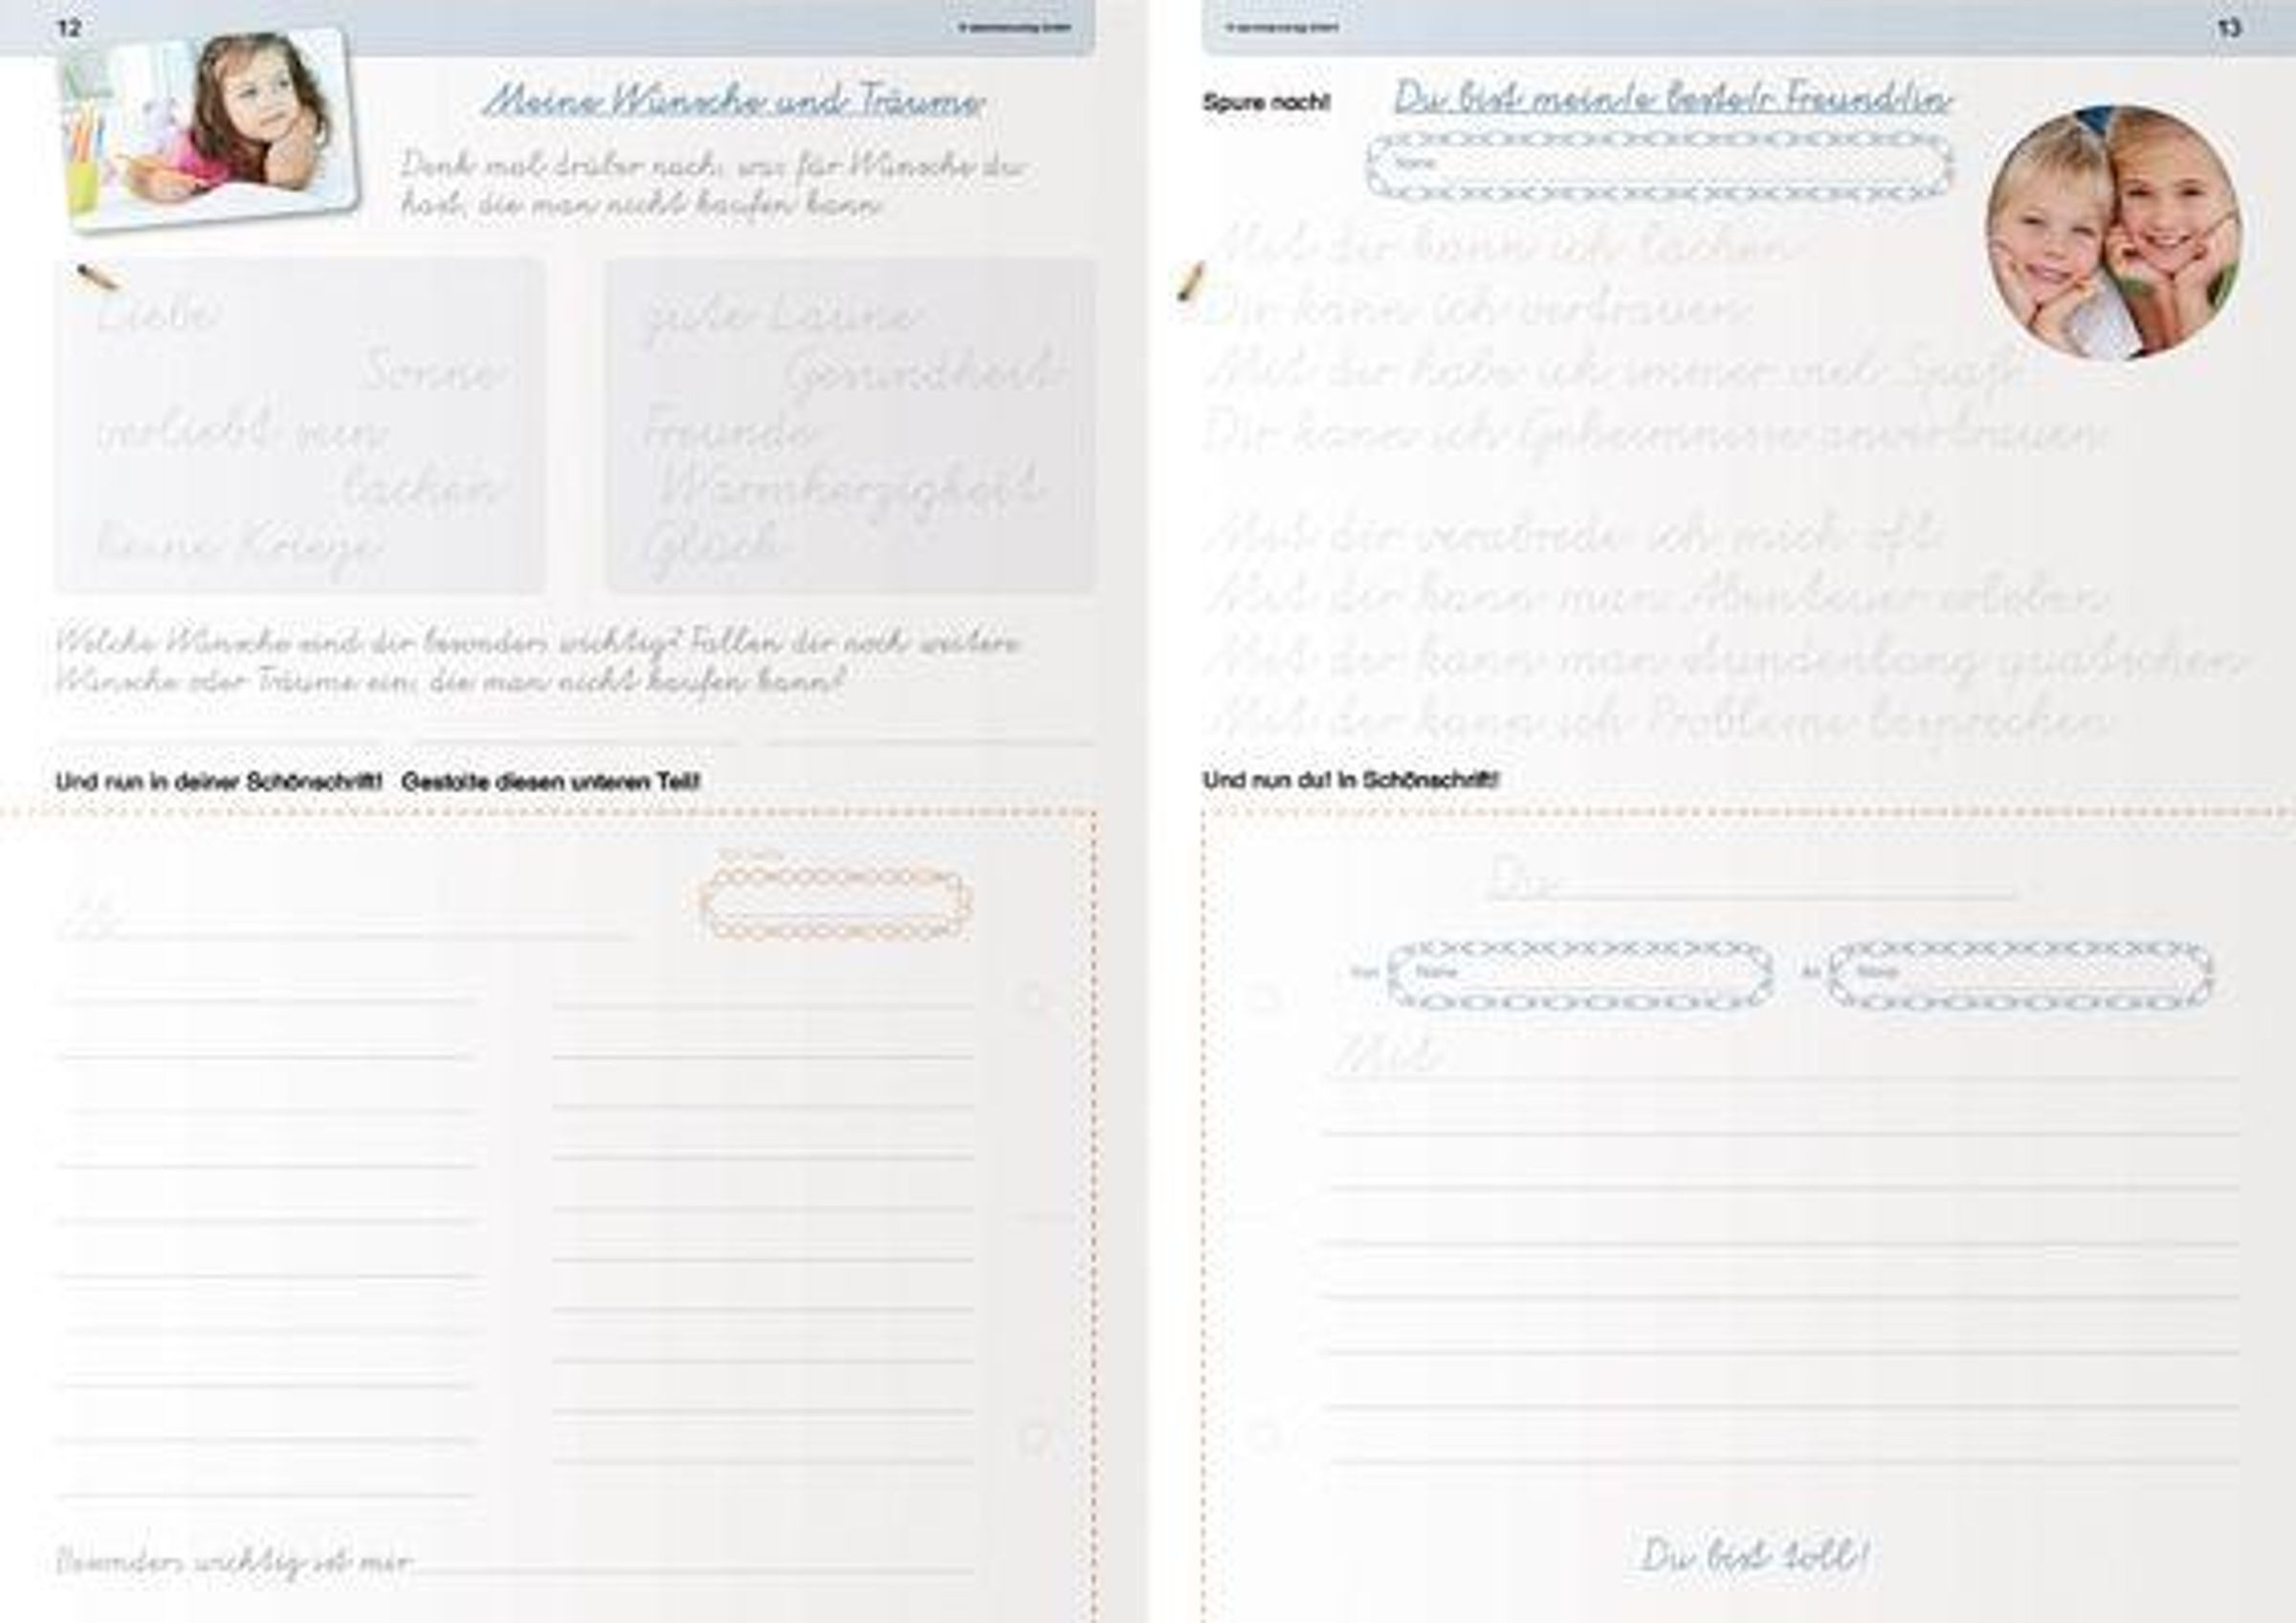 12
Meine Wünsche und Träume
Denk mal drüber nach, was für Wünsche du
hast, die man nicht kaufen kann.
Liebe
Sonne
verliebt sein
lachen
keine Kriege
gute Laune
Gesundheit
Freunde
Warmherzigkeit
Glück
Welche Wünsche sind dir besonders wichtig? Fallen dir noch weitere
Wünsche oder Träume ein, die man nicht kaufen kann?
Und nun in deiner Schönschrift! Gestalte diesen unteren Teil!
Besonders wichtig ist mir
13
Spure nach!
Du bist mein/e beste/r Freund/in
Name
Mit dir kann ich lachen
Dir kann ich vertrauen
Mit dir habe ich immer viel Spaß
Dir kann ich Geheimnisse anvertrauen
Mit dir verabrede ich mich oft
Mit dir kann man Abenteuer erleben
Mit dir kann man stundenlang quatschen
Mit dir kann ich Probleme besprechen
Und nun du! In Schönschrift!
Du
Von Name An Name
Mit
Du bist toll!